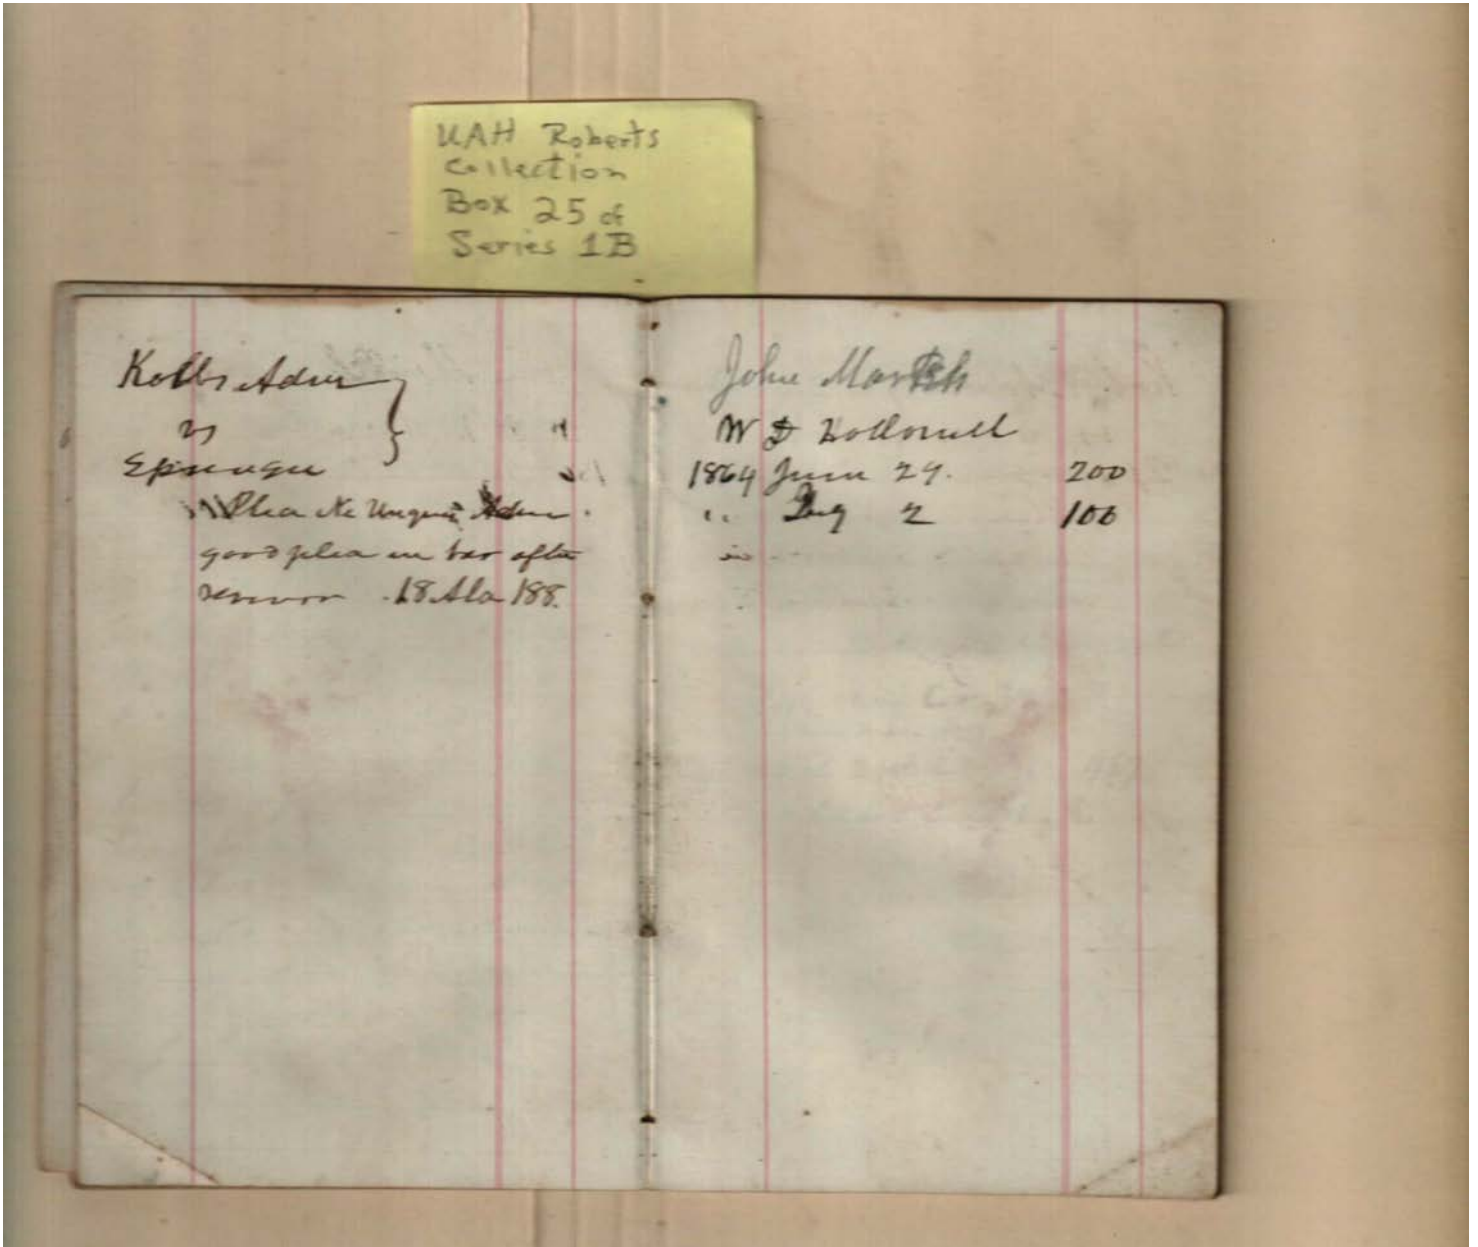 UAH Roberts
Collection
Box 25 of
Series 1B
Kolbs Admr
vs
Plea Ne Unques Admr
good plea in bar after
18 Ala 188.
John Marsh
W D
1864 June 29. 200
" Aug 2 100